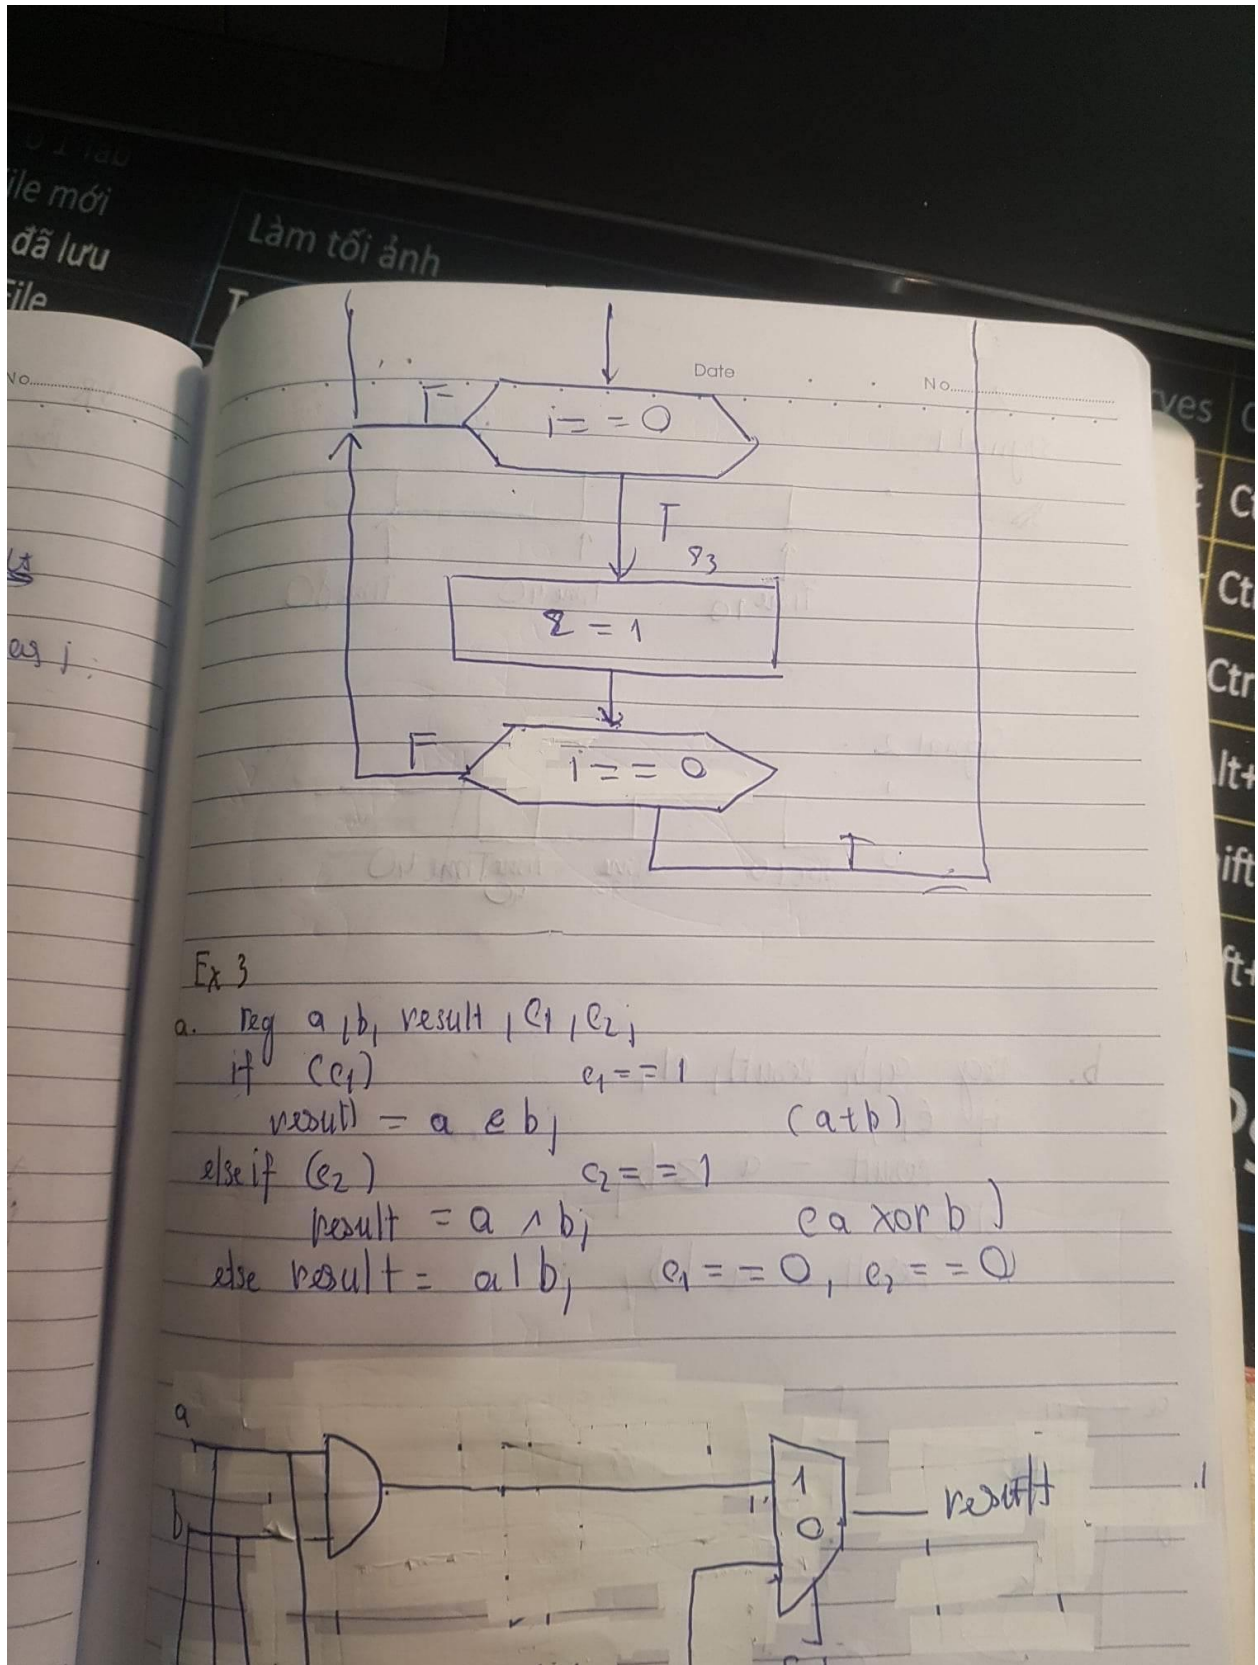 ile mới
đã lưu
File
Làm tối ảnh
No
Date
No
F
i = = 0
T
q3
z = 1
as j.
F
i = = 0
T
Ex 3
a. reg a, b, result, c1, c2;
if (c1) c1 = = 1
result = a & b; (a+b)
else if (c2) c2 = = 1
result = a ^ b; (a xor b)
else result = a | b; c1 = = 0, c2 = = 0
a
b
1
0
result